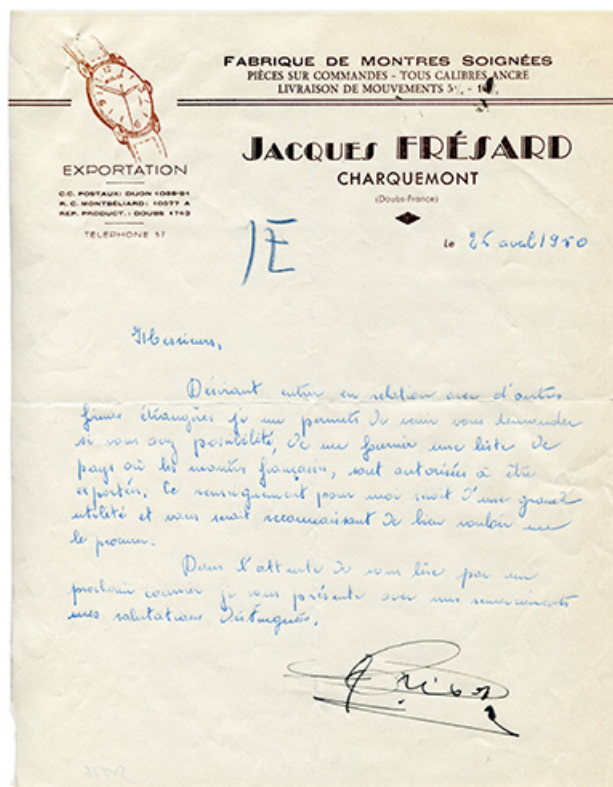 FABRIQUE DE MONTRES SOIGNÉES
PIÈCES SUR COMMANDES - TOUS CALIBRES ANCRE
LIVRAISON DE MOUVEMENTS 5
JACQUES FRÉSARD
CHARQUEMONT
(Doubs-France)
EXPORTATION
C.C. POSTAUX: DIJON 1088-91
R. C. MONTBÉLIARD: 10577 A
REP. PRODUCT.: DOUBS 1742
TÉLÉPHONE 57
le 26 avril 1950
Messieurs,
Désirant entrer en relation avec d'autres
firmes étrangères je me permets de venir vous demander
si vous avez possibilité, de me fournir une liste de
pays où les montres françaises, sont autorisées à être
exportées. Ce renseignement pour moi serait d'une grande
utilité et vous serait reconnaissant de bien vouloir me
le procurer.
Dans l'attente de vous lire par un
prochain courrier je vous présente avec mes remerciements
mes salutations distinguées.